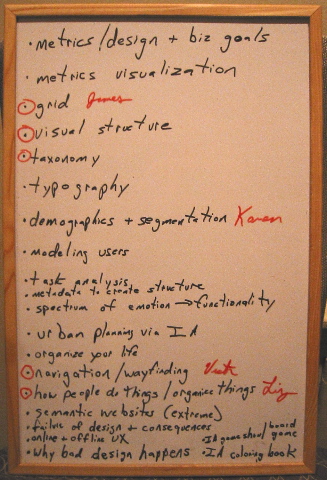 · metrics/design + biz goals
· metrics visualization
· grid James
· visual structure
· taxonomy
· typography
· demographics + segmentation Karen
· modeling users
· task analysis
· metadata to create structure
· spectrum of emotion → functionality
· urban planning via IA
· organize your life
· navigation/wayfinding
· how people do things/organize things Liz
· semantic websites (extreme)
· failure of design + consequences
· online + offline UX
· IA game show/board game
· why bad design happens
· IA coloring book